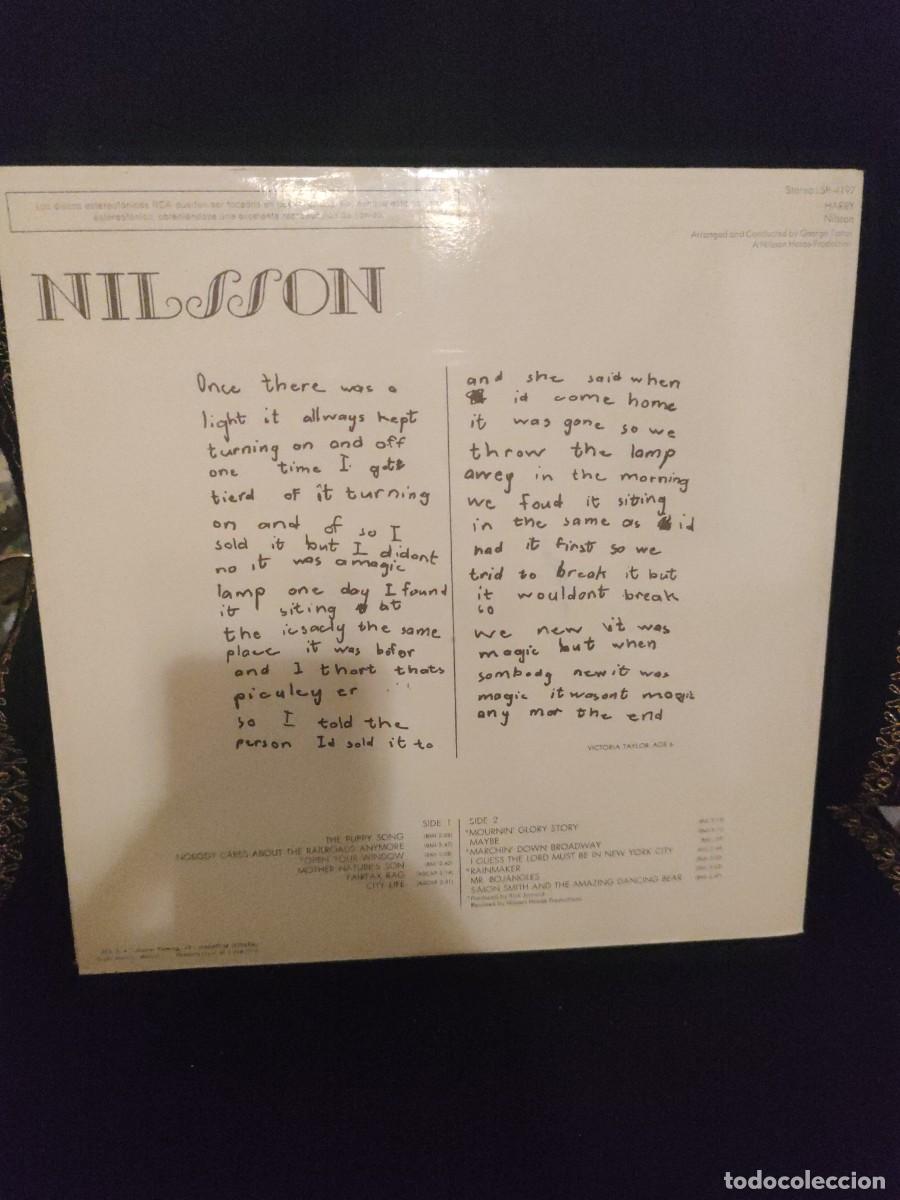 Los discos estereofónicos RCA pueden ser tocados en
estereofónico, obteniéndose una excelente
Stereo LSP-4197
HARRY
Nilsson
Arranged and Conducted by George Tipton
A Nilsson House Production
NILSSON
Once there was a
light it allways kept
turning on and off
one time I got
tierd of it turning
on and of so I
sold it but I didont
no it was a magic
lamp one day I found
it siting at
the icsacly the same
place it was befor
and I thort thats
piculey er
so I told the
person Id sold it to
and she said when
id come home
it was gone so we
throw the lamp
awey in the morning
we foud it siting
in the same as id
had it first so we
trid to break it but
it wouldont break
so
we new it was
magic but when
sombody new it was
magic it wasont magic
any mor the end
VICTORIA TAYLOR AGE 6
SIDE 1
THE PUPPY SONG
NOBODY CARES ABOUT THE RAILROADS ANYMORE
*OPEN YOUR WINDOW
MOTHER NATURE'S SON
FAIRFAX RAG
CITY LIFE
SIDE 2
*MOURNIN' GLORY STORY
MAYBE
*MARCHIN' DOWN BROADWAY
I GUESS THE LORD MUST BE IN NEW YORK CITY
*RAINMAKER
MR. BOJANGLES
SIMON SMITH AND THE AMAZING DANCING BEAR
*Produced by Rick Jarrard
Remixed by Nilsson House Productions
todocoleccion